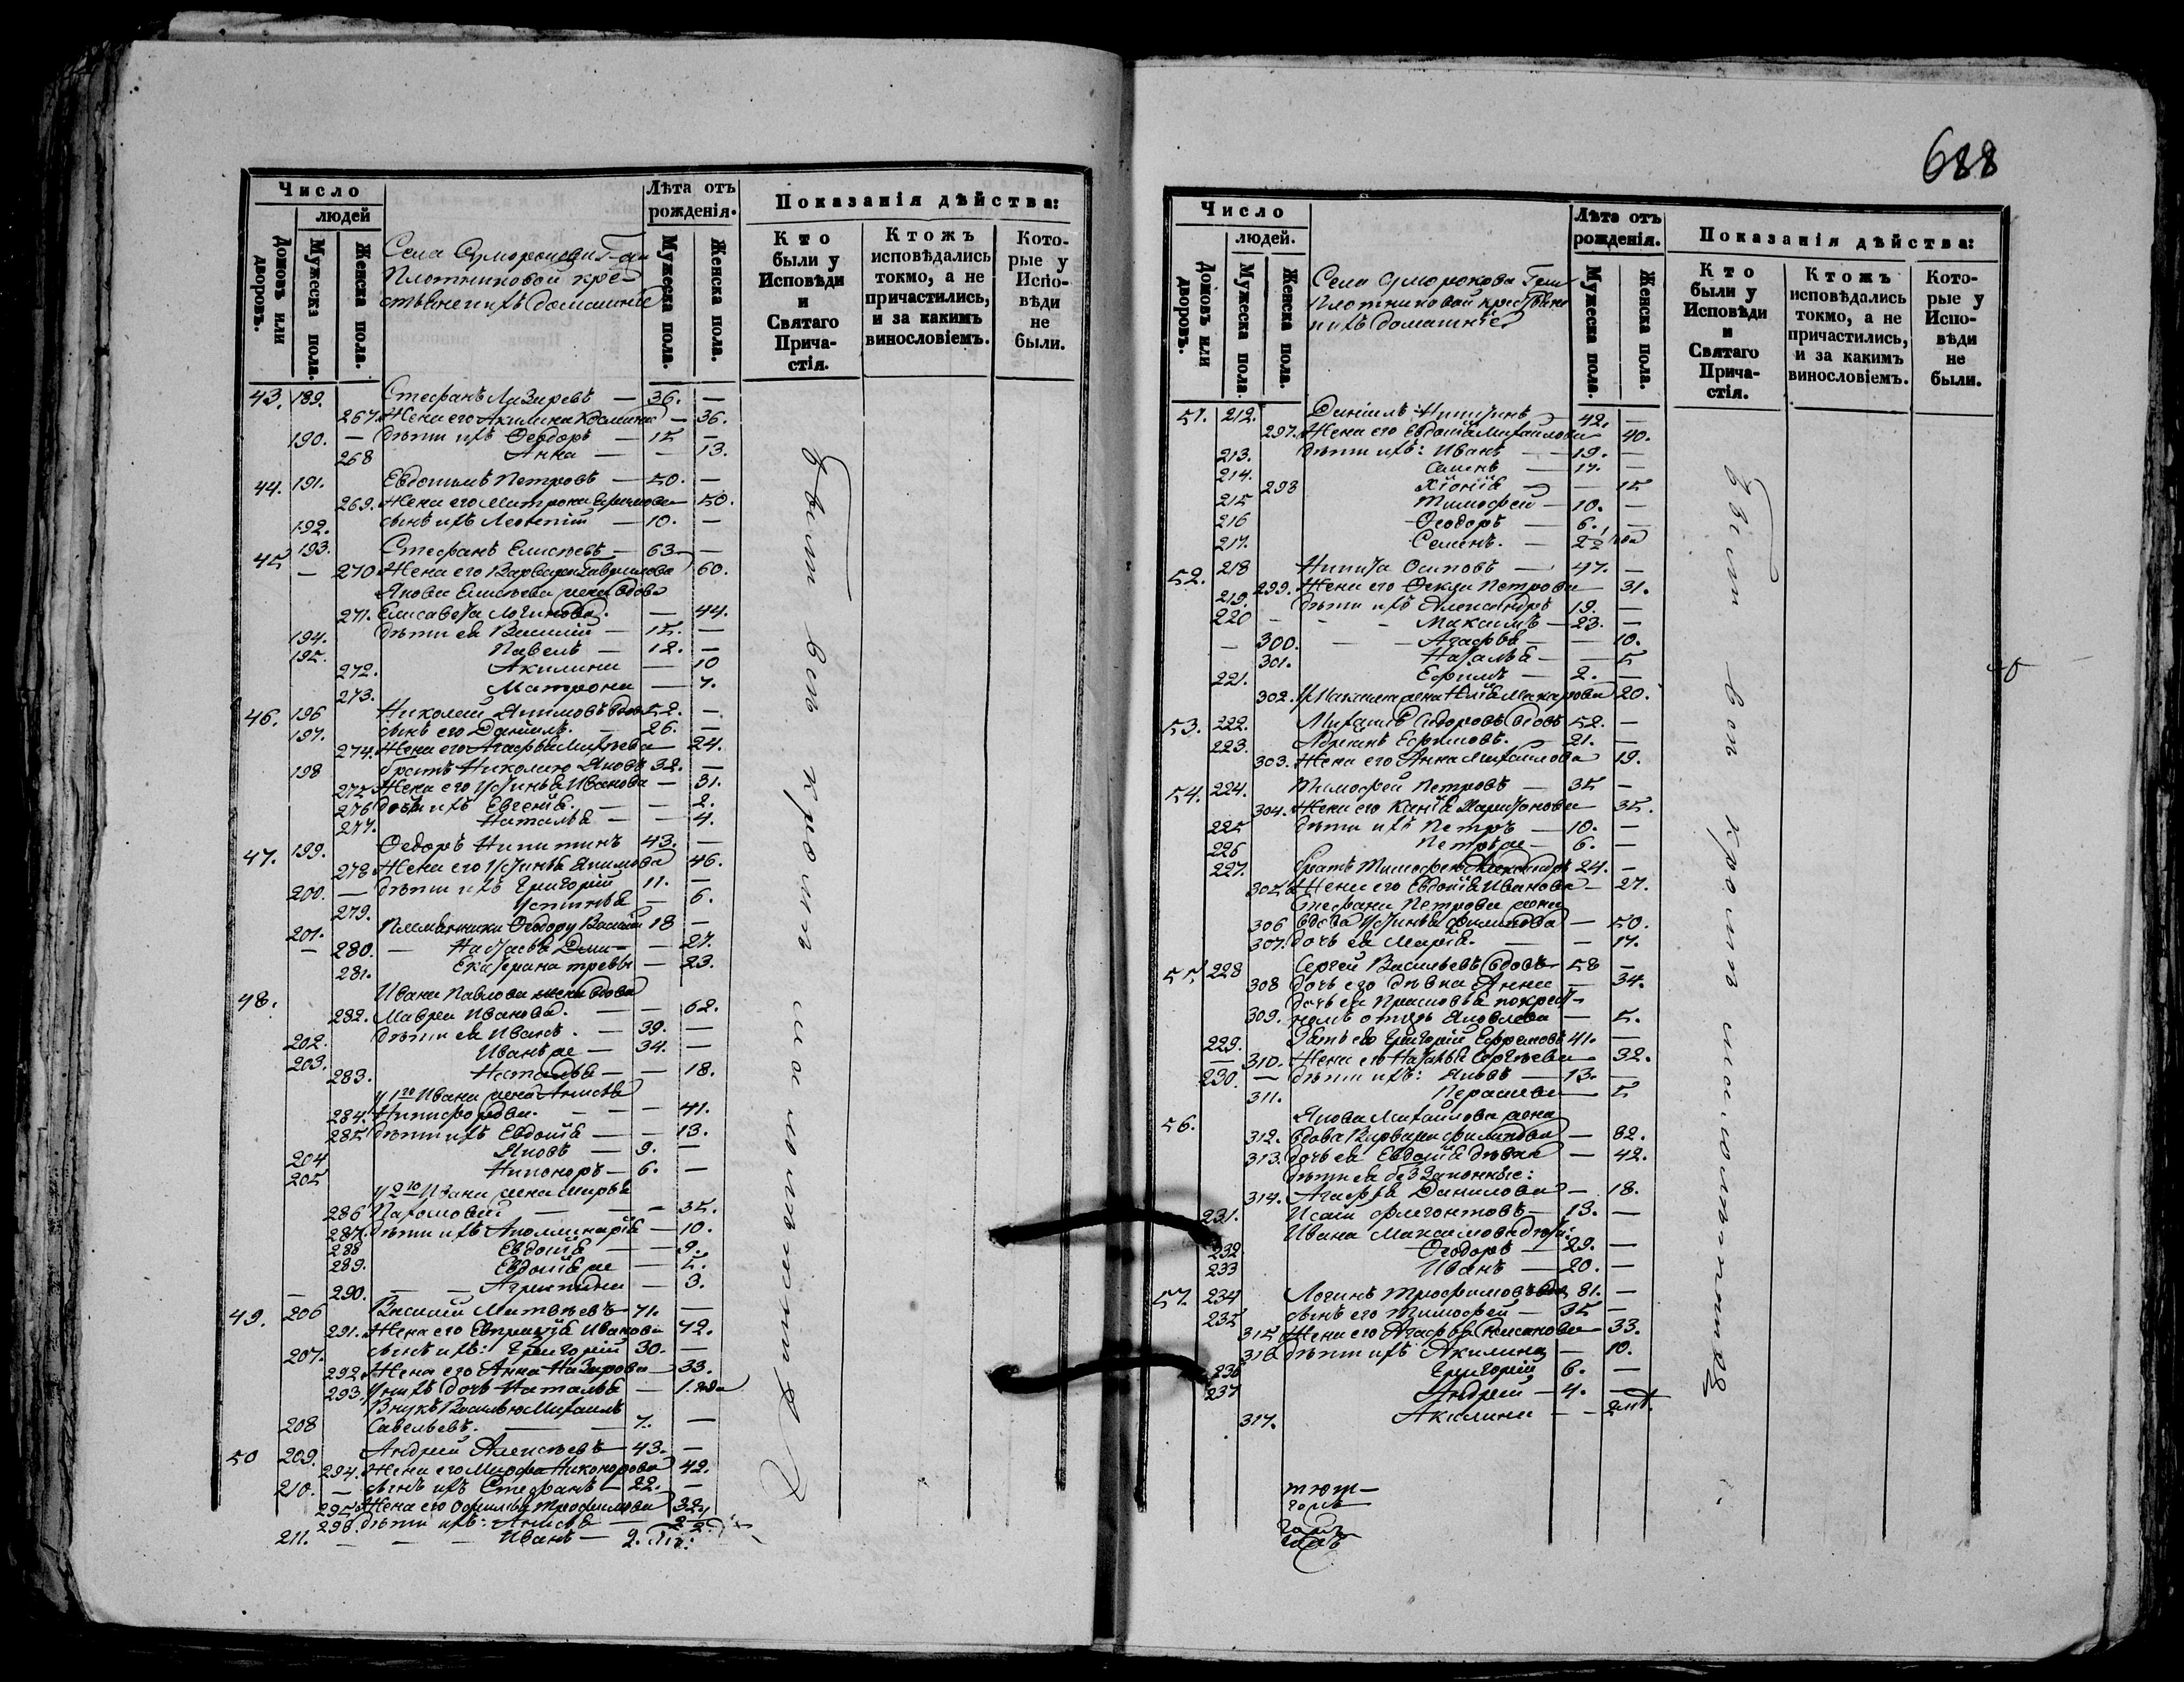 688
Число
людей
Домовъ или дворовъ.
Мужеска пола.
Женска пола.
Лѣта отъ рожденія.
Мужеска пола.
Женска пола.
Показанія дѣйства:
Кто были у Исповѣди и Святаго Прича-стія.
Ктожъ исповѣдались токмо, а не причастились, и за какимъ винословіемъ.
Кото-рые у Испо-вѣди не были.
Села
Плотниковой кре-
домашніе
43. 189. Стефанъ Лазаревъ — 36. —
267. Жена его Акилина — 36.
190. — дѣти ихъ Ѳеодоръ — 15 —
268 Анна — — 13.
44. 191. Евдокимъ Петровъ — 50. —
269. Жена его Матрона — 50.
192. сынъ ихъ Леонтій — 10. —
45 193. Стефанъ Елисѣевъ — 63 —
— 270 Жена его Варвара Гаврилова 60.
Якова Елисѣева жена вдова
271. Елисавета Логинова. — 44.
194. дѣти ея Василій — 15. —
195. Павелъ — 12. —
272. Акилина — 10
273. Матрона — 7.
46. 196 Николай Якимовъ вдовъ 52. —
197. сынъ его Даніилъ. — 26. —
274. Жена его Агафья — 24.
198 братъ Николаю Яковъ 32. —
275 Жена его Устинья Иванова — 31.
276 дочь ихъ Евгенія. — — 2.
277. Наталья — — 4.
47. 199. Ѳеодоръ Никитинъ 43. —
278 Жена его Устинья Якимова 46.
200. — дѣти ихъ Григорій 11. —
279. Устинья — 6.
201. Племянники Ѳеодору Василій 18 —
— 280. — Настасья — 27.
281. Екатерина — 23.
48. Ивана Павлова жена вдова
282. Мавра Иванова. — — 62.
202. дѣти ея Иванъ. — 39. —
203. Иванъ же — 34. —
283. Наталья — — 18.
у 1го Ивана жена Анисья
284. Никифорова. — — — 41.
285. дѣти ихъ Евдокія — — 13.
204 Яковъ — 9. —
205 Никоноръ — 6. —
у 2го Ивана жена Марья
286 — — 35.
287. дѣти ихъ Аполлинарія — 10.
288 Евдокія — — 9.
289. Евдокія же — 5.
— 290. — — Агриппина — 3.
49. 206 Василій Матвѣевъ — 71. —
291. Жена его Евпраксія Иванова 72.
207. сынъ ихъ: Григорій 30. —
292. Жена его Анна Назарова — 33.
293. у нихъ дочь Наталья — 1. года
Внукъ Василью Михаилъ
208 Савельевъ. — 7. —
50 209. Андрей Алексѣевъ — 43. —
294. Жена его Марфа Никонорова 42.
210. — сынъ ихъ Стефанъ — 22. —
295 Жена его Трофимова 32
296. дѣти ихъ: Анисья —
211. — — — Иванъ — 2.
Число
людей.
Домовъ или дворовъ.
Мужеска пола
Женска пола.
Лѣта отъ рожденія.
Мужеска пола.
Женска пола.
Показанія дѣйства:
Кто были у Исповѣди и Святаго Прича-стія.
Ктожъ исповѣдались токмо, а не причастились, и за какимъ винословіемъ.
Кото-рые у Испо-вѣди не были.
Села
Плотниковой крестьяне
и ихъ домашніе
51. 212. Даніилъ Никитинъ — 42. —
297. Жена его Евдокія Михайлова 40.
213. дѣти ихъ: Иванъ — 19. —
214. Семенъ — 17. —
298 Хіонія — — 15
215 Тимофей — 10. —
216 Ѳеодоръ — 6. —
217. Семенъ. — 2 1/2 года
52. 218 Никита Осиповъ — 47. —
299. Жена его Ѳекла Петрова — 31.
219. дѣти ихъ Александръ 19. —
220 — — — Максимъ — 23. —
— 300. — — Агафья — — 10.
301. Наталья — — 5
221. Ефимъ — 2. —
302. у Максима жена Макарова 20.
53. 222. Михаилъ Ѳедоровъ вдовъ 52. —
223. Ефимовъ. — 21. —
303. Жена его Анна Михайлова 19.
54. 224. Тимофей Петровъ — 35 —
304. Жена его Харитонова — 35.
225 дѣти ихъ Петръ — 10. —
226 Петръ же — 6. —
227. братъ Тимофею Александръ 24. —
305 Жена его Евдокія Иванова — 27.
Стефана Петрова жена
306 вдова Устинья Филипова — 50.
307. дочь ея Марія. — — 17.
55 228 Сергей Васильевъ вдовъ — 58 —
308 дочь его дѣвка Анна — 34.
дочь ея Прасковья по крест-
309. номъ отцѣ Яковлева — 5.
229. Зять его Григорій Ефремовъ 41. —
— 310. Жена его Наталья Сергѣева — 32.
230. — дѣти ихъ: Яковъ — 13. —
311. Параскева — 5
56. Якова Михайлова жена
312. вдова Варвара Филипова — 82.
313. дочь ея Евдокія дѣвка — 42.
дѣти ея беззаконные:
314. Агафья Данилова — 18.
231. Исаій Флегонтовъ — 13. —
Ивана Максимова дѣти:
232 Ѳеодоръ — 29. —
233 Иванъ — 20. —
57. 234 Логинъ Трофимовъ вдов 81. —
235 сынъ его Тимофей — 35 —
315 Жена его Агафья — 33.
316 дѣти ихъ Акилина — 10.
236 Григорій 6. —
237 Андрей — 4. —
317. Акилина — — 2